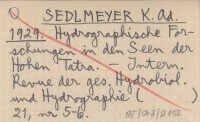 SEDLMEYER K. Ad.
1929. Hydrographische For-
schungen in den Seen der
Hohen Tatra. — Intern.
Revue der ges. Hydrobiol.
und Hydrographie ( )
21, nr 5-6.